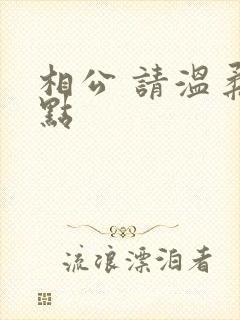 相公 請溫柔
點
流浪漂泊者